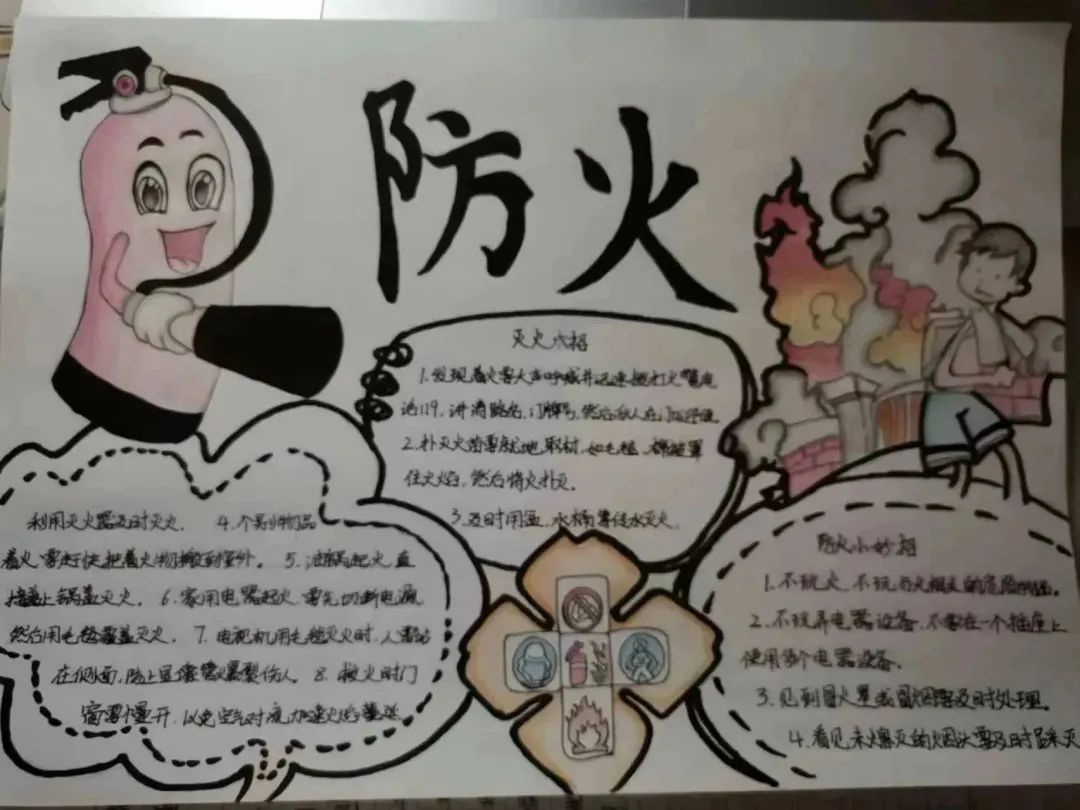 防火
灭火六招
1.发现着火要大声呼喊并迅速拨打火警电
话119,讲清路名,门牌号,然后派人在门口迎接。
2.扑灭火焰要就地取材,如毛毯、棉被罩
住火焰,然后将火扑灭。
3.及时用盆、水桶等传水灭火,
利用灭火器及时灭火。 4.个别物品
着火,要赶快把着火物搬到室外。 5.油锅起火,直
接盖上锅盖灭火。 6.家用电器起火,要先切断电源,
然后用毛毯覆盖灭火。 7.电视机用毛毯灭火时,人要站
在侧面,防止显像管爆裂伤人。 8.救火时门
窗要慢开,以免空气对流加速火焰蔓延
防火小妙招
1.不玩火,不玩与火相关的危险物。
2.不玩弄电器设备,不要在一个插座上
使用多个电器设备。
3.见到冒火星或冒烟要及时处理。
4.看见未熄灭的烟头要及时踩灭